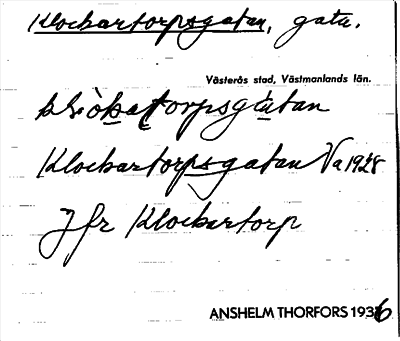 Klockartorpsgatan, gata.
Västerås stad, Västmanlands län.
Klockartorpsgatan Va 1928
Jfr Klockartorp
ANSHELM THORFORS 1936